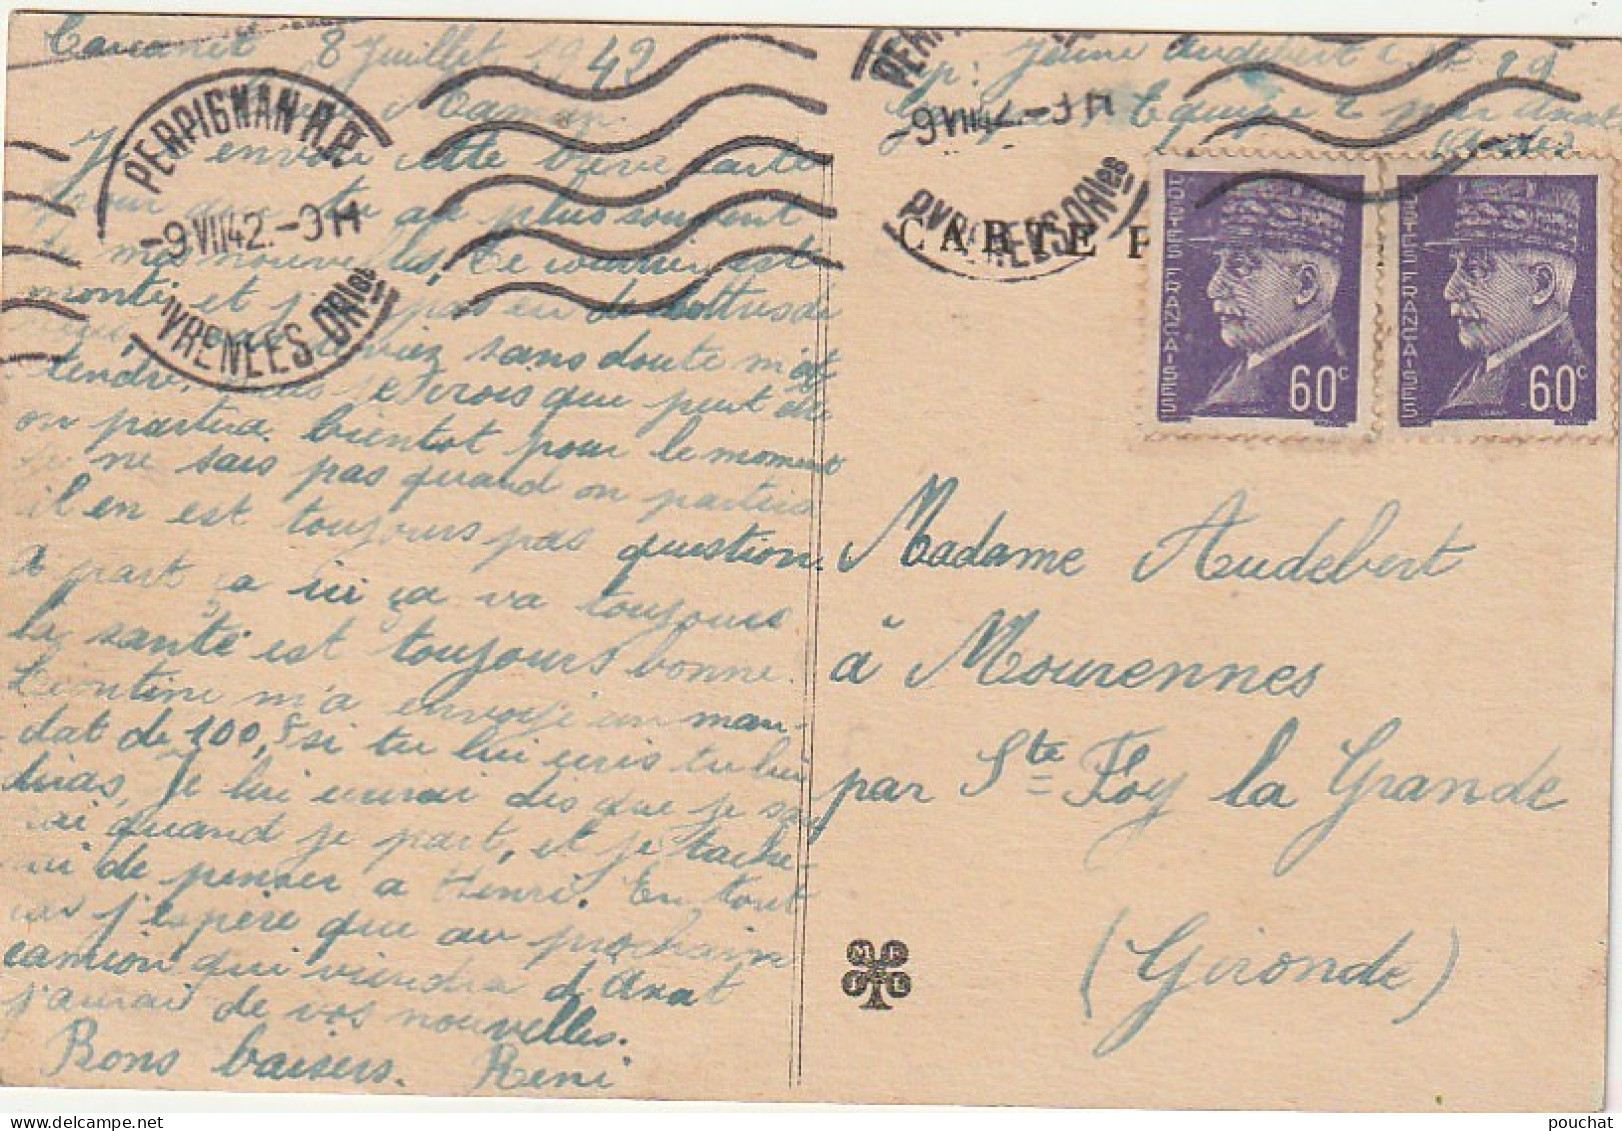 8 Juillet 1942
Maman
Je t'envoie cette brève carte
pour que tu ai plus souvent
de mes nouvelles, Le courrier est
monté et j'ai pas eu de lettres de
sans doute m'at
tendre, mais je crois que peut être
on partira bientot pour le moment
je ne sais pas quand on partira
il en est toujours pas question.
à part ça ici ça va toujours
la santé est toujours bonne.
Léontine m'a envoyé un man-
dat de 100, F si tu lui écris tu lui
diras, je lui écrirai dès que je sau
rai quand je part, et je tache-
rai de penser à Henri. En tout
cas j'espère que au prochain
camion qui viendra d'Axat
j'aurai de vos nouvelles.
Bons baisers. René
PERPIGNAN R.P.
-9 VII 42.-9H
PYRENEES ORles
Jeune Audebert
Equipe
-9 VII 42.-9H
PYRENEES ORles
CARTE P
POSTES FRANCAISES
60c
POSTES FRANCAISES
60c
Madame Audebert
à Mourennes
par Ste Foy la Grande
(Gironde)
M E
I L
pouchat